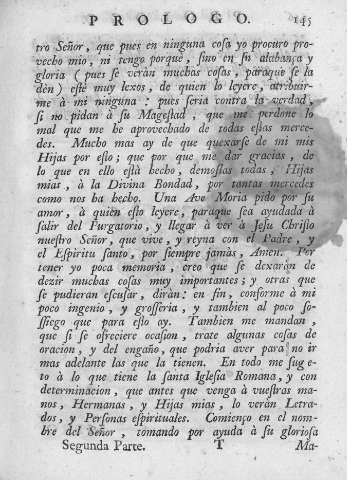 PROLOGO. 145
tro Señor, que pues en ninguna cosa yo procuro pro-
vecho mio, ni tengo porque, sino en su alabança y
gloria (pues se verán muchas cosas, paraque se la
dèn) estè muy lexos, de quien lo leyere, atribuir-
me à mi ninguna: pues seria contra la verdad,
si no pidan à su Magestad, que me perdone lo
mal que me he aprovechado de todas estas merce-
des. Mucho mas ay de que quexarse de mi mis
Hijas por esto; que por que me dar gracias, de
lo que en ello està hecho, demoslas todas, Hijas
mias, à la Divina Bondad, por tantas mercedes
como nos ha hecho. Una Ave Maria pido por su
amor, à quièn esto leyere, paraque sea ayudada à
salir del Purgatorio, y llegar à ver à Jesu Christo
nuestro Señor, que vive, y reyna con el Padre, y
el Espiritu santo, por siempre jamàs, Amen. Por
tener yo poca memoria, creo que se dexarán de
dezir muchas cosas muy importantes; y otras que
se pudieran escusar, dirán: en fin, conforme à mi
poco ingenio, y grosseria, y tambien al poco so-
ssiego que para esto ay. Tambien me mandan,
que si se ofreciere ocasion, trate algunas cosas de
oracion, y del engaño, que podria aver para no ir
mas adelante las que la tienen. En todo me suge-
to à lo que tiene la santa Iglesia Romana, y con
determinacion, que antes que venga à vuestras ma-
nos, Hermanas, y Hijas mias, lo verán Letra-
dos, y Personas espirituales. Comienço en el nom-
bre del Señor, tomando por ayuda à su gloriosa
Segunda Parte. T Ma-